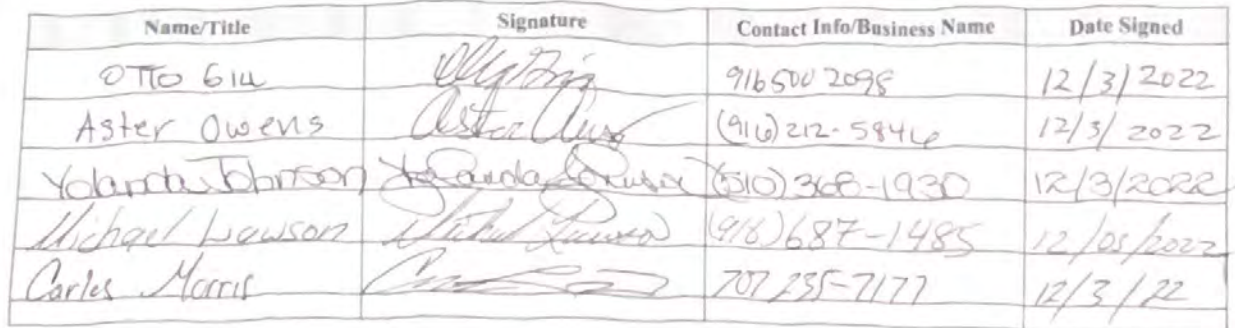 Name/Title Signature Contact Info/Business Name Date Signed
OTTO Giu 916 500 2098 12/3/2022
Aster Owens (916) 212-5846 12/3/2022
Yolanda Johnson Yolanda Johnson (510) 368-1930 12/3/2022
Michael Lawson Michael Lawson (916) 687-1485 12/03/2022
Carlos Morris 707 235-7177 12/3/22